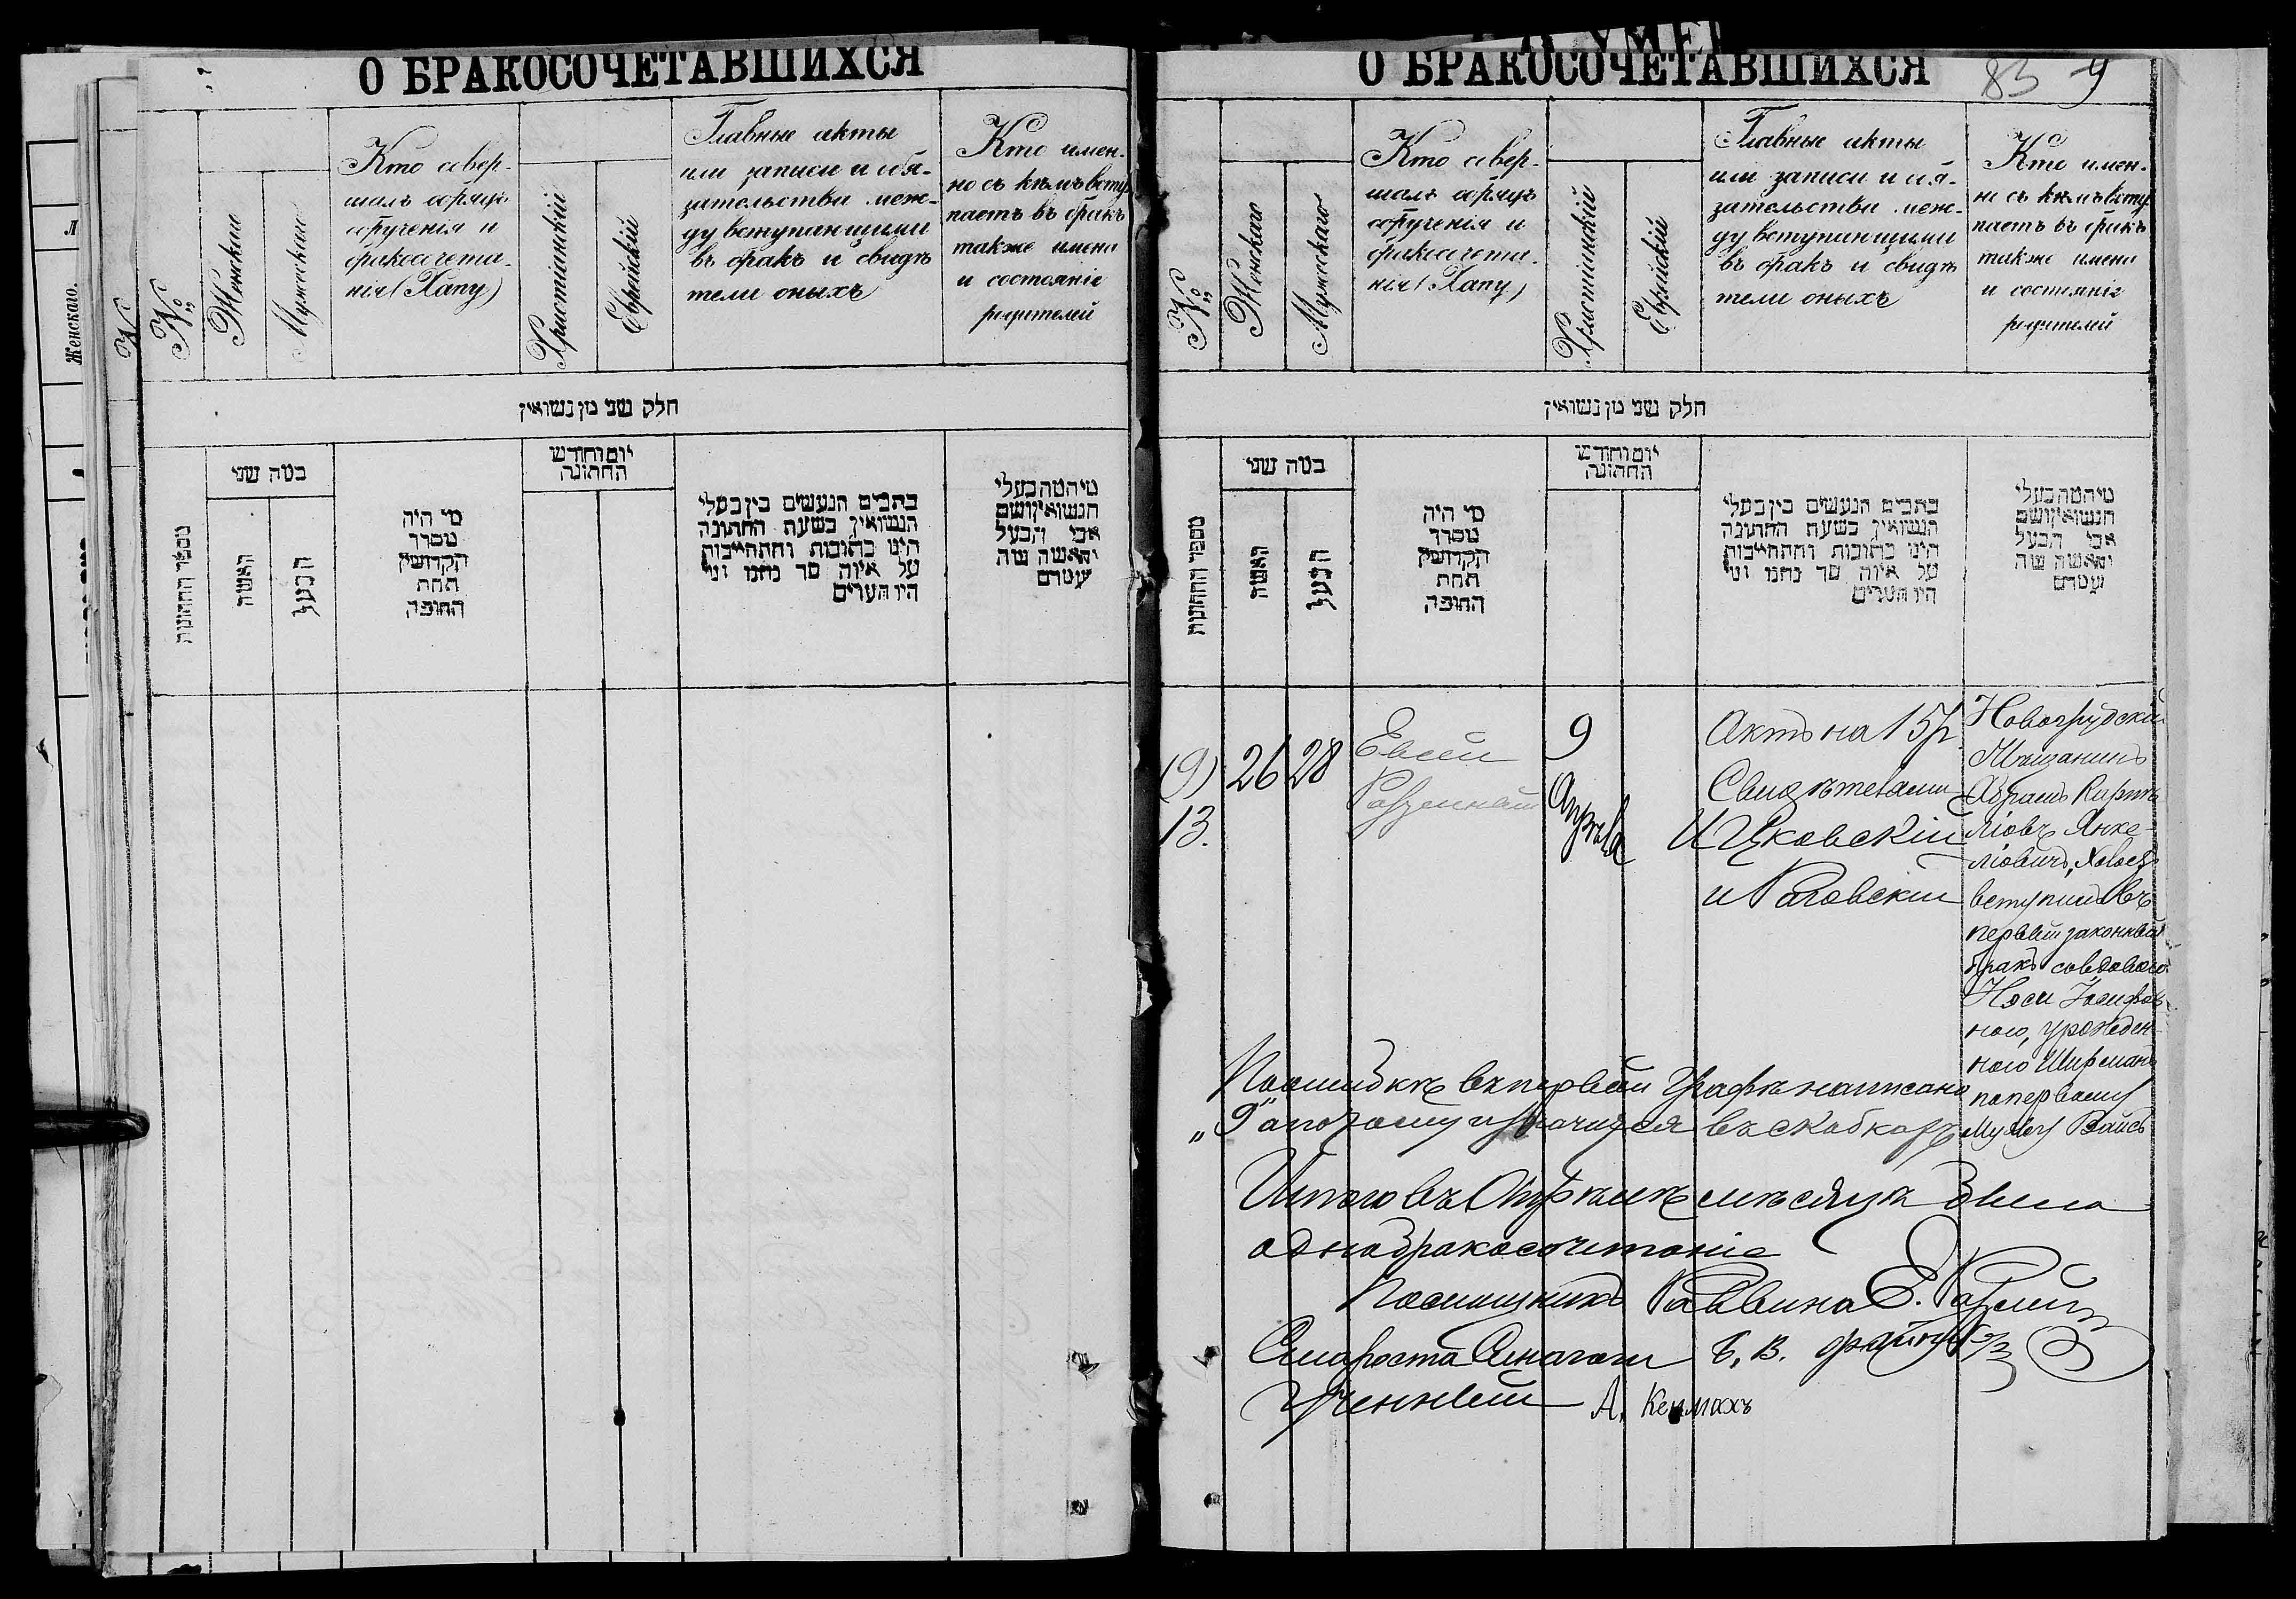 О БРАКОСОЧЕТАВШИХСЯ
Женскаго.
№
№
Женскаго
Мужескаго
Кто совер-
шалъ обрядъ
обрученія и
бракосочета-
нія (Хапу)
Христіанскій
Еврейскій
Главные акты
или записи и обя-
зательства меж-
ду вступающими
въ бракъ и свидѣ
тели оныхъ
Кто имен-
но съ кѣмъ всту
паетъ въ бракъ
также имена
и состояніе
родителей
חלק שני מן נשואין
מספר החתונות
כמה שני
האשה
הבעל
מי היה
מסדר
הקדושין
תחת
החופה
יום וחודש
החתונה
כתבים הנעשים בין בעלי
הנשואין בשעת החתונה
היינו כתובות והתחייבות
על איזה סך נתנו ומי
היו העדים
מי המה בעלי
הנשואין ושם
אבי הבעל
והאשה ומה
מעמדם
О БРАКОСОЧЕТАВШИХСЯ
83 9
№
Женскаго
Мужескаго
Кто совер-
шалъ обрядъ
обрученія и
бракосочета-
нія (Хапу)
Христіанскій
Еврейскій
Главные акты
или записи и обя-
зательства меж-
ду вступающими
въ бракъ и свидѣ
тели оныхъ
Кто имен-
но съ кѣмъ всту
паетъ въ бракъ
также имена
и состояніе
родителей
חלק שני מן נשואין
מספר החתונות
כמה שני
האשה
הבעל
מי היה
מסדר
הקדושין
תחת
החופה
יום וחודש
החתונה
כתבים הנעשים בין בעלי
הנשואין בשעת החתונה
היינו כתובות והתחייבות
על איזה סך נתנו ומי
היו העדים
מי המה בעלי
הנשואין ושם
אבי הבעל
והאשה ומה
מעמדם
(9)
13.
26
28
Евсей
9
Апрѣля
Актъ на 15 р.
Свидѣтели
Ицковскій
и Раговскій
Новогрудскій
Мѣщанинъ
Абрамъ
Янке-
ліовичъ,
вступилъ въ
первый законный
бракъ со вдовою
Іосифов-
ною, урожден-
ною Ширманъ
по первому
мужу Вайсъ
По ошибкѣ въ первой графѣ написано
„9" а потому въ скобкахъ
Итого въ Апрѣлѣ мѣсяцѣ было
одно бракосочетаніе
Помощникъ Раввина Е.
Староста Синагоги Б. В.
Ученый А.